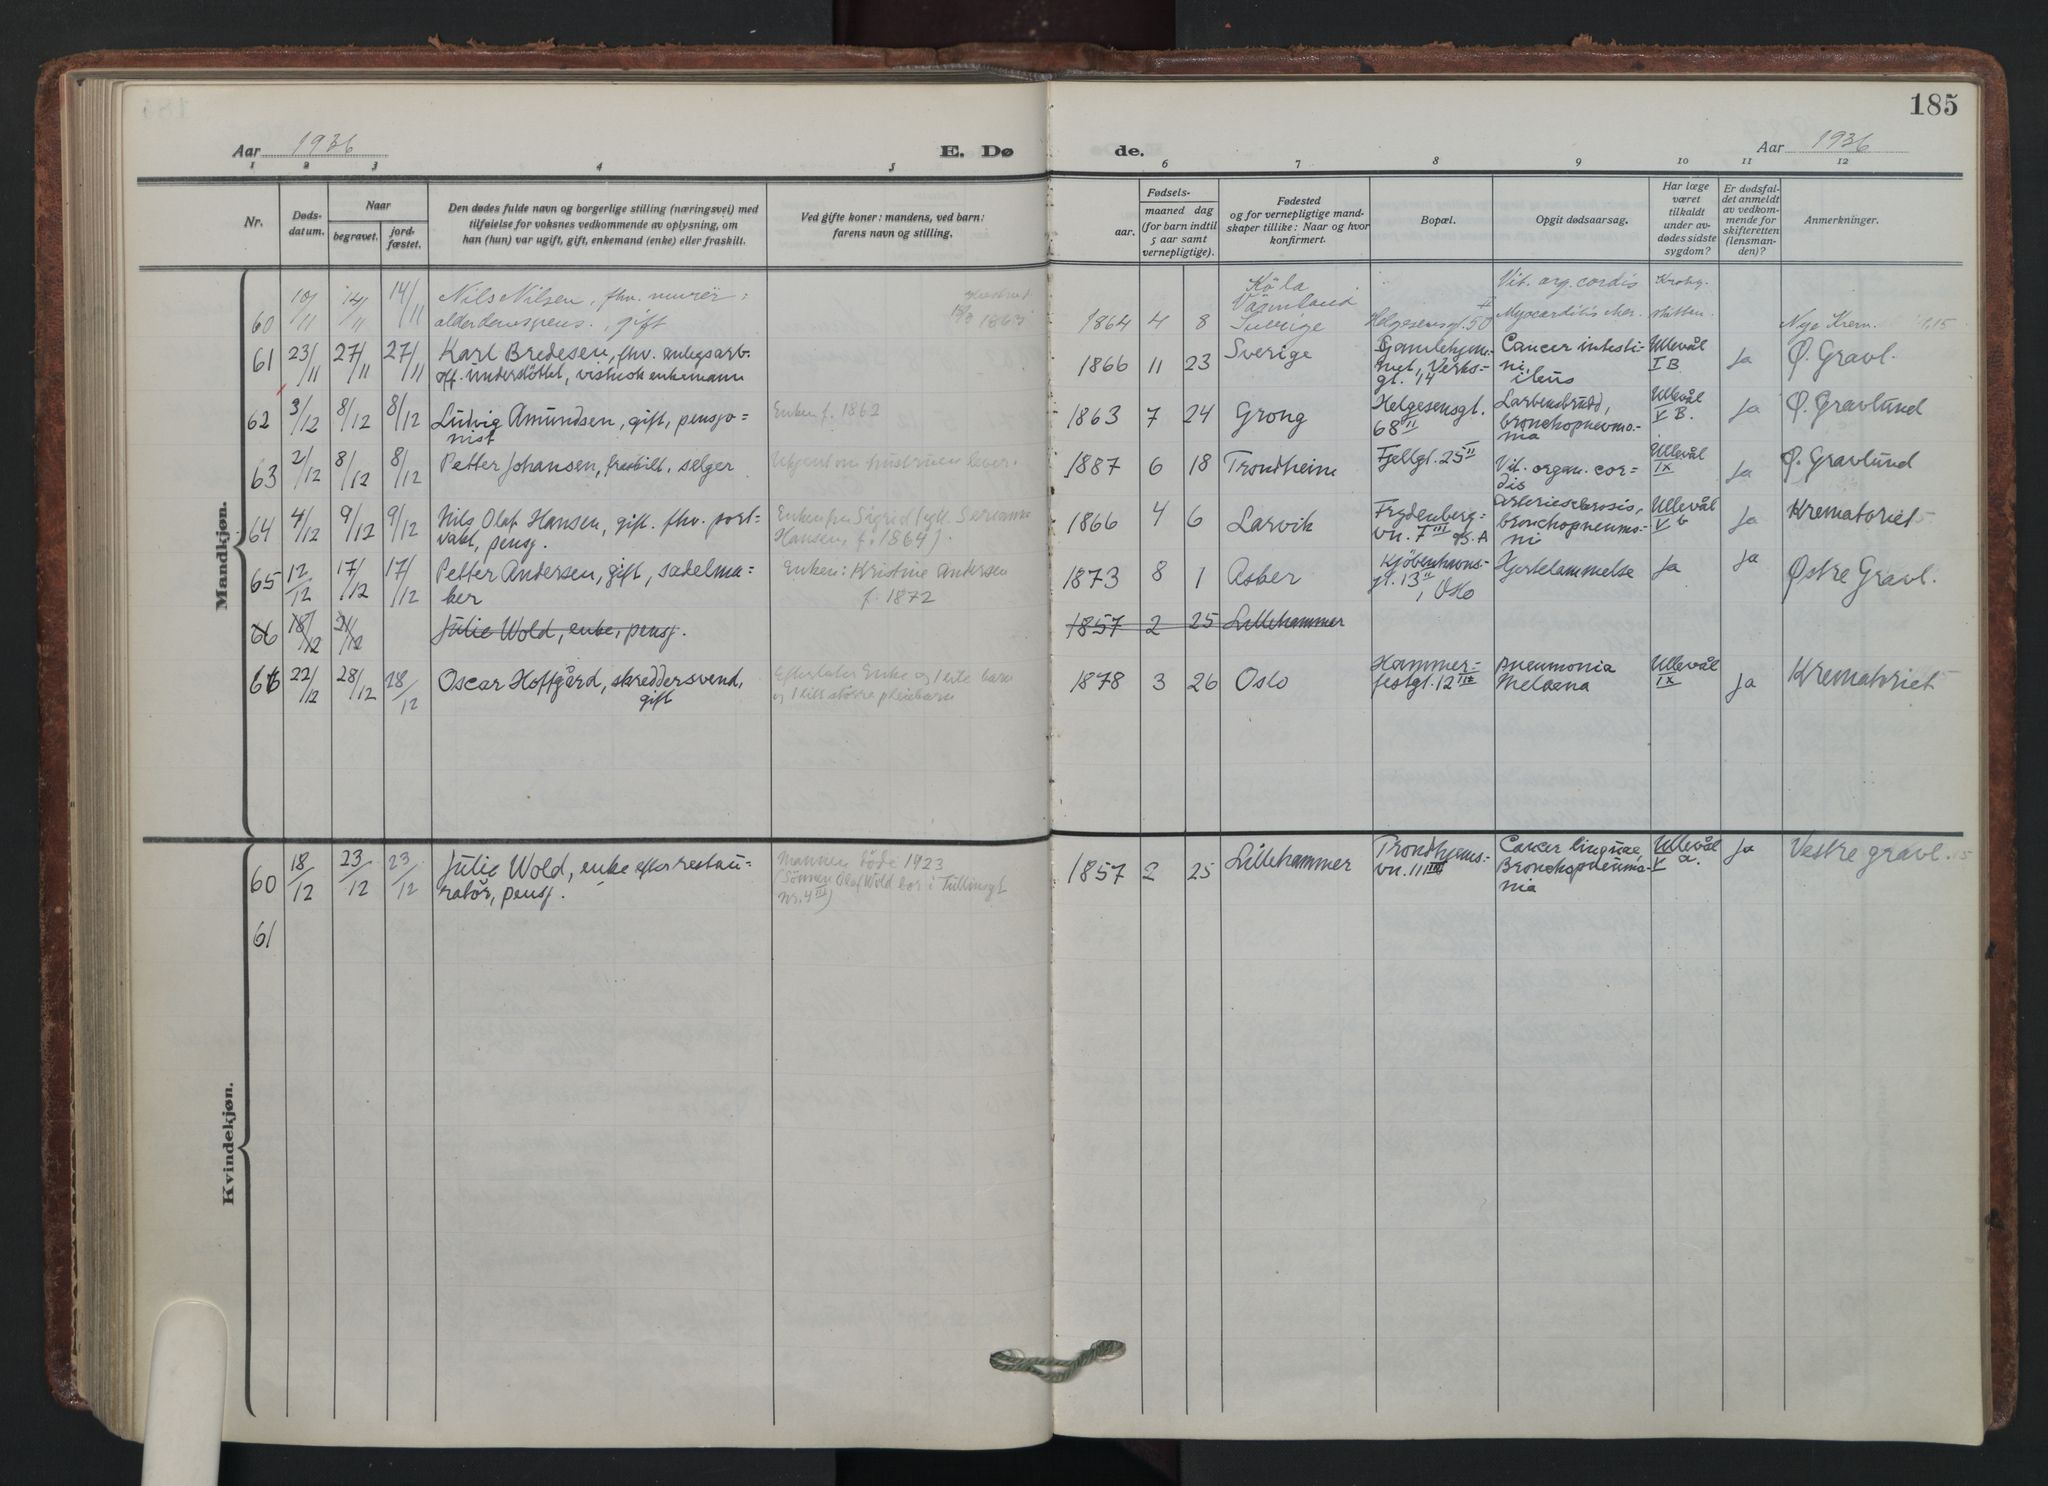 185
Aar 1936
E. Dø
de.
Aar 1936
1 2 3 4 5
6 7 8 9 10 11 12
Nr.
Døds-
datum.
Naar
begravet.
jord-
fæstet.
Den dødes fulde navn og borgerlige stilling (næringsvei) med
tilføielse for voksnes vedkommende av oplysning, om
han (hun) var ugift, gift, enkemand (enke) eller fraskilt.
Ved gifte koner: mandens, ved barn:
farens navn og stilling.
Fødsels-
aar.
maaned dag
(for barn indtil
5 aar samt
vernepligtige).
Fødested
og for vernepligtige mand-
skaper tillike: Naar og hvor
konfirmert.
Bopæl.
Opgit dødsaarsag.
Har læge
været
tilkaldt
under av-
dødes sidste
sygdom?
Er dødsfal-
det anmeldt
av vedkom-
mende for
skifteretten
(lensman-
den)?
Anmerkninger.
Mandkjøn.
60 10/11 14/11 14/11 Nils Nilsen, fhv. murer
alderdomspens., gift
1863
1864 4 8
Köla
Sverige
Helgesensgt. 50 II
Vit. org. cordis
Nye Krem.
61 23/11 27/11 27/11 Karl Bredesen, fhv. anlegsarb.
off. understöttet, vistnok enkemann
1866 11 23 Sverige
Gamlehjem-
met, Verks-
gt. 14
Cancer intesti-
ni,
ileus
Ullevål
I B
Ja
Ø. Gravl.
62 3/12 8/12 8/12 Ludvig Amundsen, gift, pensjo-
nist
Enken f. 1862
1863 7 24 Grong
Helgesensgt.
68 II
Larbensbrudd,
bronchopneumo-
nia
Ullevål
V B.
Ja
Ø. Gravlund
63 2/12 8/12 8/12 Petter Johansen, fraskilt, selger
Ukjent om hustruen lever.
1887 6 18 Trondheim
Fjellgt. 25 II
Vit. organ. cor-
dis
Ullevål
IX
Ja
Ø. Gravlund
64 4/12 9/12 9/12 Nils Olaf Hansen, gift. fhv. port-
vakt, pensj.
Hansen, f. 1864)
1866 4 6 Larvik
Frydenberg-
vn. 7 III
Arteriesclerosis,
bronchopneumo-
ni
Ullevål
V b
Ja
Krematoriet
65 12/12 17/12 17/12 Petter Andersen, gift, sadelma-
ker
Enken: Kristine Andersen
f. 1872
1873 8 1 Asker
Kjöbenhavns-
gt. 13 II, Oslo
Hjertelammelse
Ja
Ja
Østre Gravl.
66 18/12 21/12 Julie Wold, enke, pensj.
1857 2 25 Lillehammer
66 22/12 28/12 28/12 Oscar Hoffgård, skreddersvend,
gift
Efterlater Enke og 1 ekte barn
og 1 litt större pleiebarn
1878 3 26 Oslo
Hammer-
festgt. 12 III
Pneumonia
Melaena
Ullevål
IX
Ja
Krematoriet
Kvindekjøn.
60 18/12 23/12 23/12 Julie Wold, enke efter restau-
ratör, pensj.
Mannen döde 1923
(Sönnen Olaf Wold bor i Tullinsgt
Nr. 4 III)
1857 2 25 Lillehammer
Trondhjems-
vn. 111 III
Cancer linguae,
Bronchopneumo-
nia
Ullevål
V a.
Ja
Vestre gravl.
61